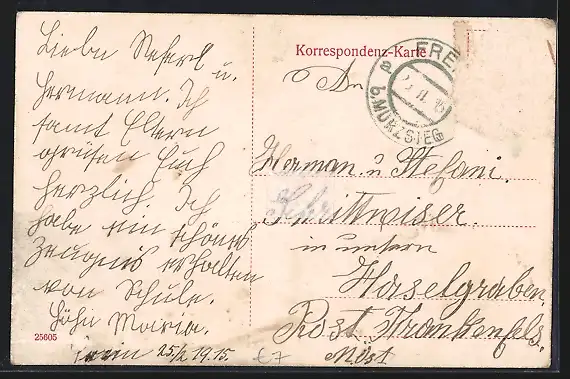 Liebn Referl u.
Hermann. Ich
samt Eltern
grüsen Euch
herzlich. Ich
habe ein schönes
Zeugnis erhalten
von Schule.
Maria.
25/2 1915.
25605
Korrespondenz-Karte
An
FREI
b. MÜRZSTEG
Herman u Stefani.
Schrittwiser
in untern
Haselgraben.
Post Frankenfels.
£7